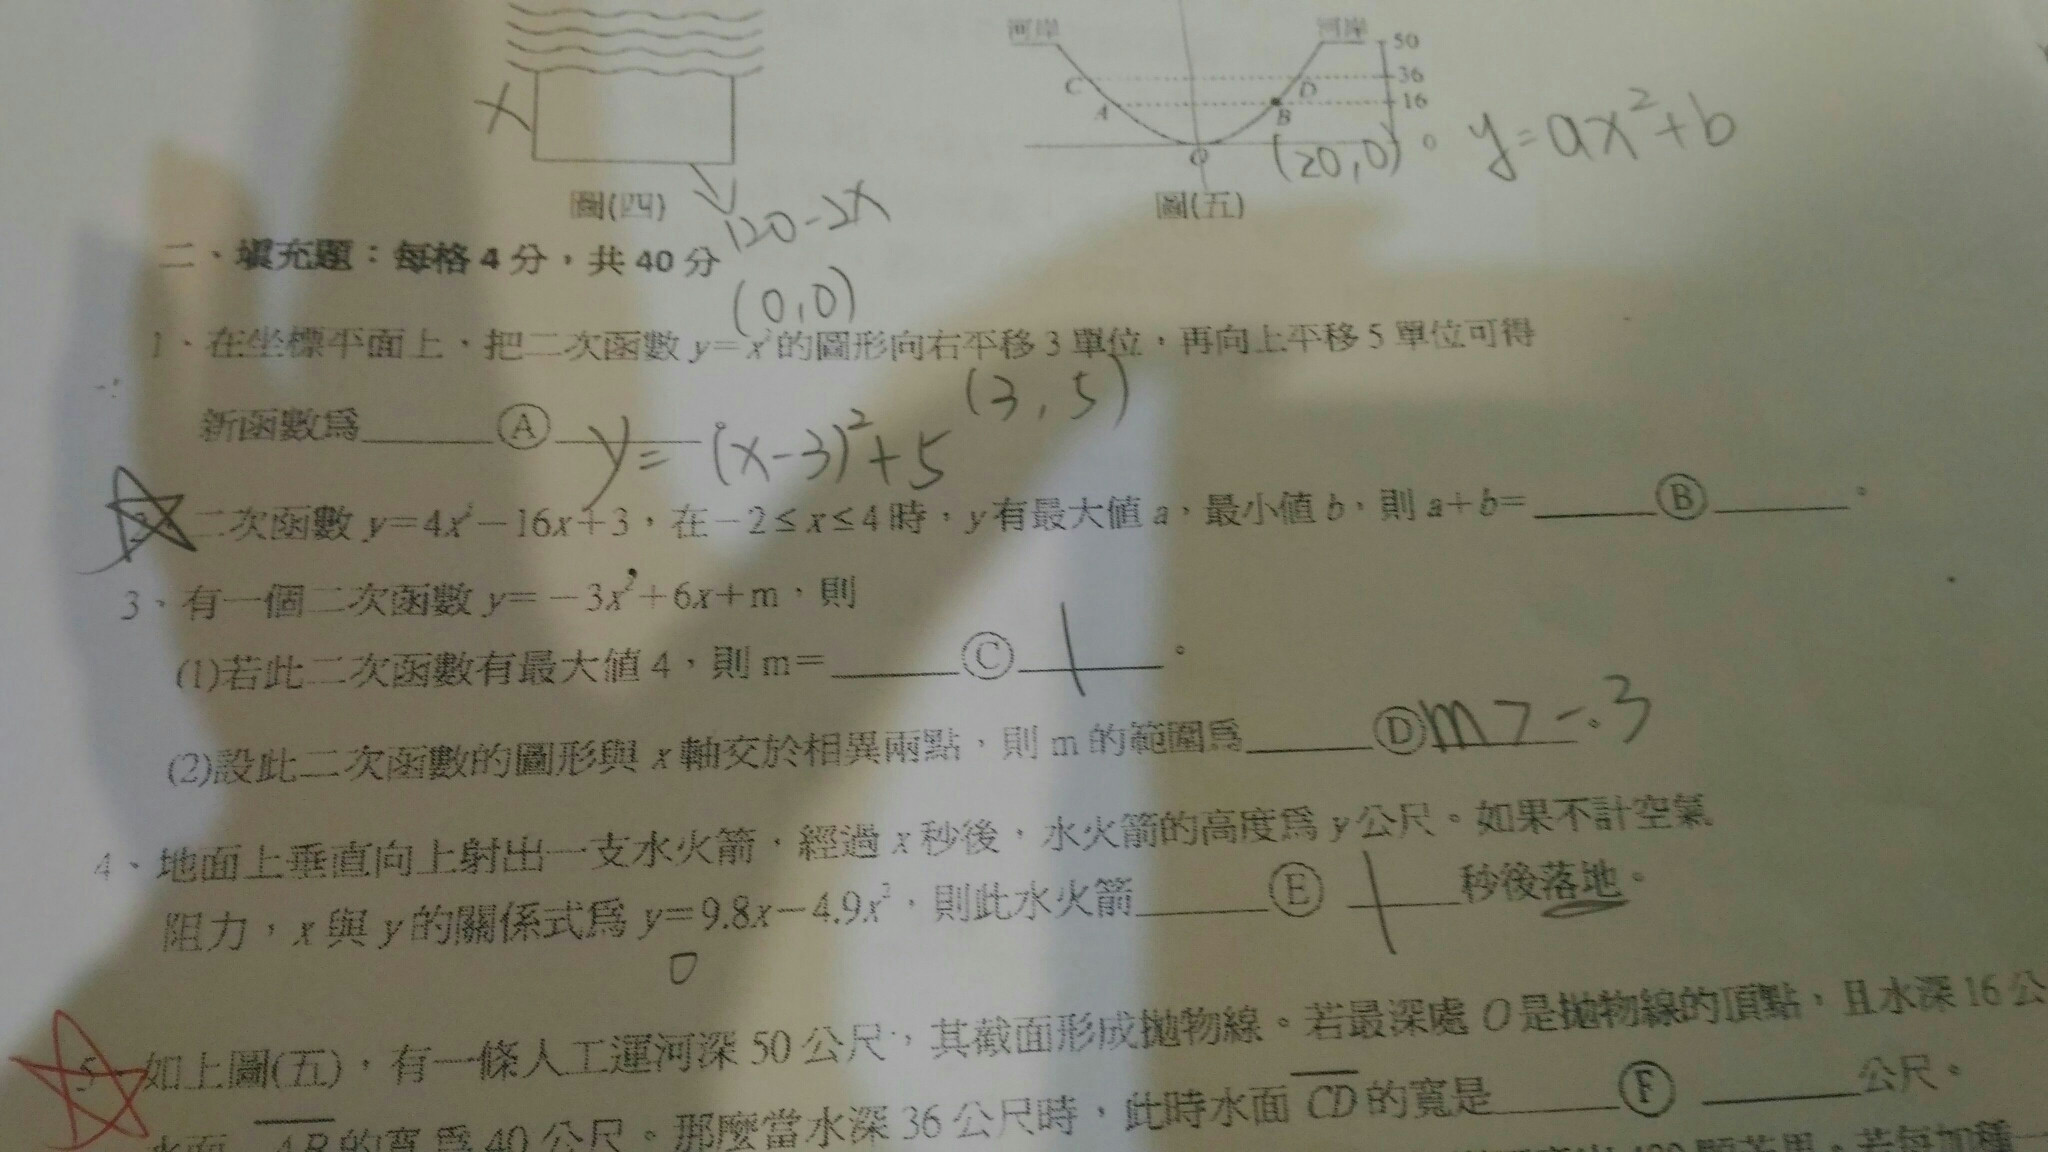 河岸 河岸
50
36
16
0
C D
A B
O
x
(20,0)
y=ax²+b
圖(四) 圖(五)
120-2x
二、填充題：每格4分，共40分
(0,0)
1、在坐標平面上，把二次函數y=x²的圖形向右平移3單位，再向上平移5單位可得
(3,5)
新函數為 Ⓐ 。
y=(x-3)²+5
2、二次函數y=4x²-16x+3，在-2≤x≤4時，y有最大值a，最小值b，則a+b= Ⓑ 。
3、有一個二次函數y=-3x²+6x+m，則
(1)若此二次函數有最大值4，則m= Ⓒ 1 。
(2)設此二次函數的圖形與x軸交於相異兩點，則m的範圍為 Ⓓ m>-3 。
4、地面上垂直向上射出一支水火箭，經過x秒後，水火箭的高度為y公尺。如果不計空氣
阻力，x與y的關係式為y=9.8x-4.9x²，則此水火箭 Ⓔ 1 秒後落地。
0
5、如上圖(五)，有一條人工運河深50公尺，其截面形成拋物線。若最深處O是拋物線的頂點，且水深16公
水面 AB的寬為40公尺。那麼當水深36公尺時，此時水面CD的寬是 Ⓕ 公尺。